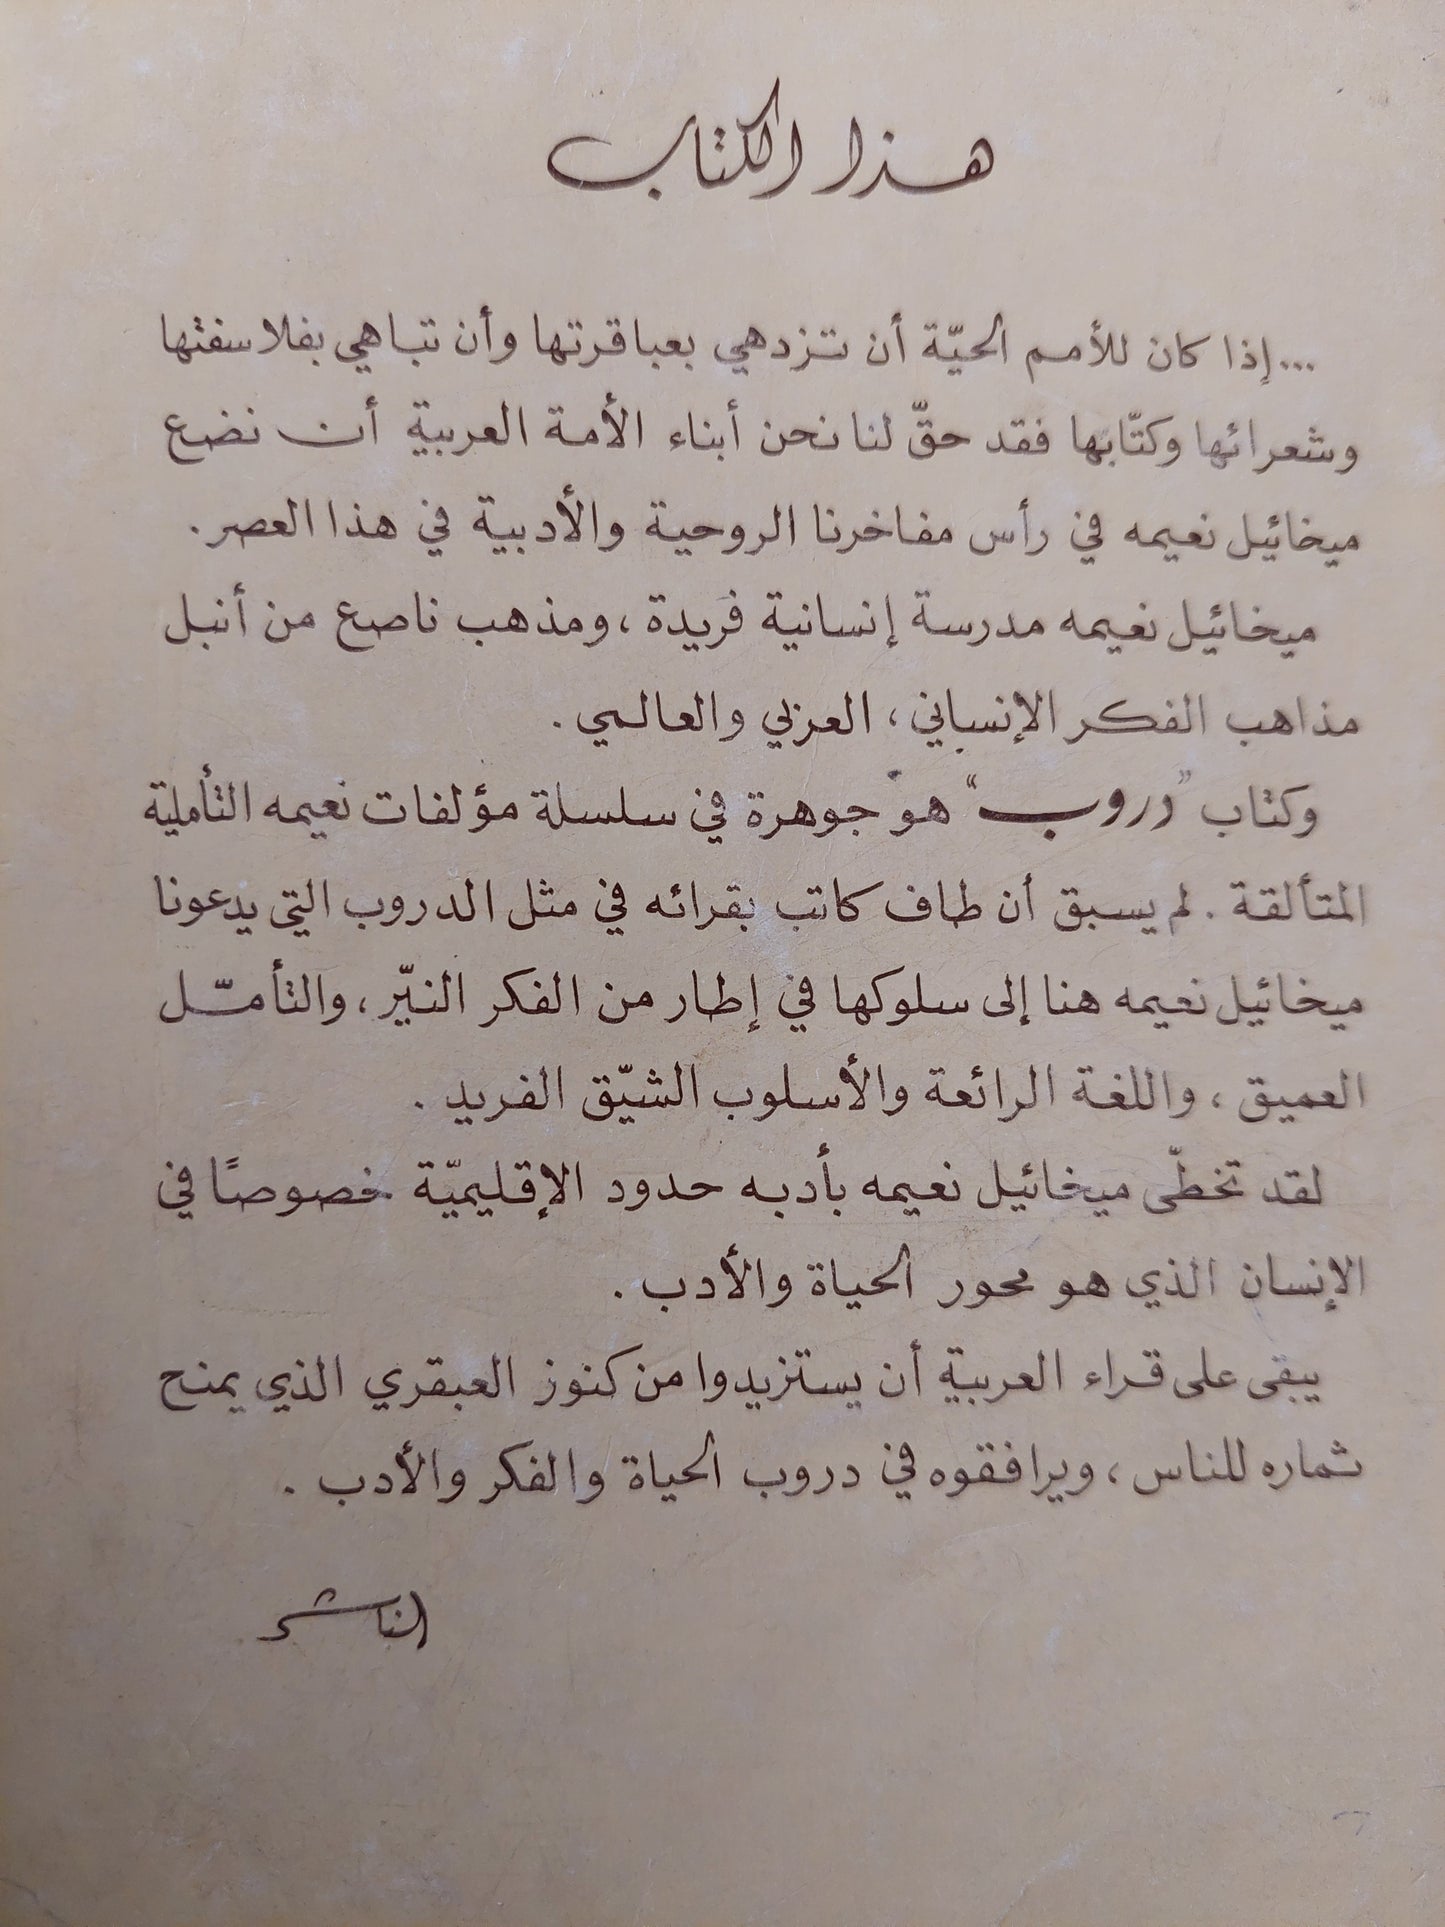 هذا الكتاب
...إذا كان للأمم الحيّة أن تزدهي بعباقرتها وأن تباهي بفلاسفتها
وشعرائها وكتّابها فقد حقّ لنا نحن أبناء الأمة العربية أن نضع
ميخائيل نعيمه في رأس مفاخرنا الروحية والأدبية في هذا العصر.
ميخائيل نعيمه مدرسة إنسانية فريدة، ومذهب ناصع من أنبل
مذاهب الفكر الإنساني، العربي والعالمي.
وكتاب "دروب" هو جوهرة في سلسلة مؤلفات نعيمه التأملية
المتألقة. لم يسبق أن طاف كاتب بقرائه في مثل الدروب التي يدعونا
ميخائيل نعيمه هنا إلى سلوكها في إطار من الفكر النيّر، والتأمّل
العميق، واللغة الرائعة والأسلوب الشيّق الفريد.
لقد تخطّى ميخائيل نعيمه بأدبه حدود الإقليميّة خصوصًا في
الإنسان الذي هو محور الحياة والأدب.
يبقى على قراء العربية أن يستزيدوا من كنوز العبقري الذي يمنح
ثماره للناس، ويرافقوه في دروب الحياة والفكر والأدب.
الناشر